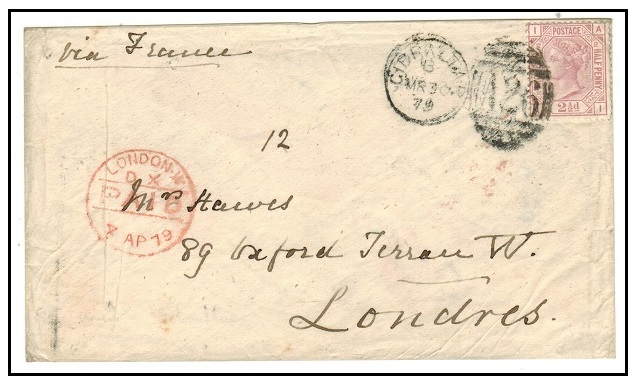 via France
GIBRALTAR
G
MR 30
79
A26
POSTAGE
HALF PENNY
2½d
I A
A I
12
LONDON.W.
D X
4 AP 79
Mrs Hawes
89 Oxford Terrace W.
Londres.